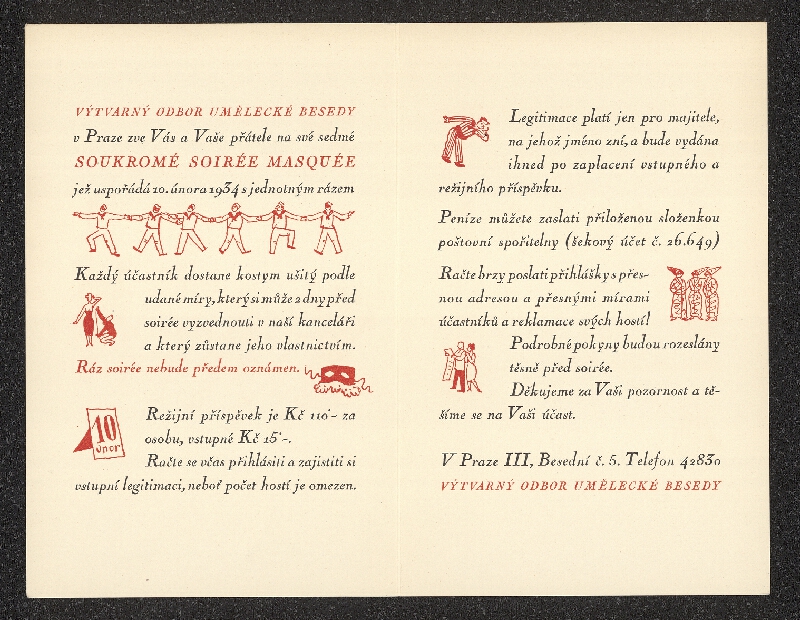 VÝTVARNÝ ODBOR UMĚLECKÉ BESEDY
v Praze zve Vás a Vaše přátele na své sedmé
SOUKROMÉ SOIRÉE MASQUÉE
jež uspořádá 10. února 1934 s jednotným rázem
Každý účastník dostane kostym ušitý podle
udané míry, který si může 2 dny před
soirée vyzvednouti v naší kanceláři
a který zůstane jeho vlastnictvím.
Ráz soirée nebude předem oznámen.
10
únor
Režijní příspěvek je Kč 110·- za
osobu, vstupné Kč 15·-.
Račte se včas přihlásiti a zajistiti si
vstupní legitimaci, neboť počet hostí je omezen.
Legitimace platí jen pro majitele,
na jehož jméno zní, a bude vydána
ihned po zaplacení vstupného a
režijního příspěvku.
Peníze můžete zaslati přiloženou složenkou
poštovní spořitelny (šekový účet č. 26.649)
Račte brzy poslati přihlášky s přes-
nou adresou a přesnými mírami
účastníků a reklamace svých hostí!
Podrobné pokyny budou rozeslány
těsně před soirée.
Děkujeme za Vaši pozornost a tě-
šíme se na Vaši účast.
V Praze III, Besední č. 5. Telefon 42830
VÝTVARNÝ ODBOR UMĚLECKÉ BESEDY